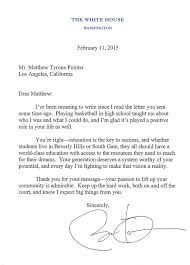 THE WHITE HOUSE
WASHINGTON
February 11, 2015
Mr. Matthew Tyrone Pointer
Los Angeles, California
Dear Matthew:
I've been meaning to write since I read the letter you sent
some time ago. Playing basketball in high school taught me about
who I was and what I could do, and I'm glad it's played a positive
role in your life as well.
You're right—education is the key to success, and whether
students live in Beverly Hills or South Gate, they all should have a
world-class education with access to the resources they need to reach
for their dreams. Your generation deserves a system worthy of your
potential, and every day I am fighting to make that vision a reality.
Thank you for your message—your passion to lift up your
community is admirable. Keep up the hard work, both on and off the
court, and know I expect big things from you.
Sincerely,